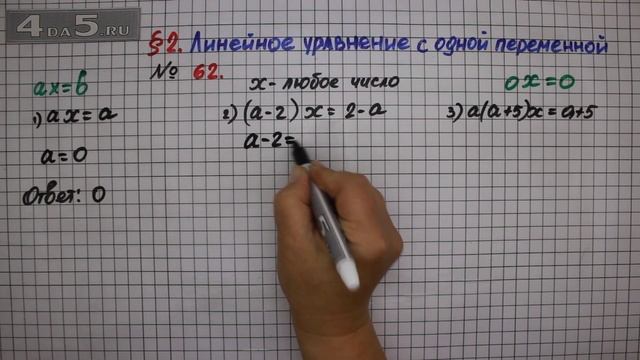 4DA5.RU
§2. Линейное уравнение с одной переменной
№ 62.
ax=b
x - любое число
0x=0
1) ax=a
2) (a-2)x=2-a
3) a(a+5)x=a+5
a=0
a-2=
Ответ: 0